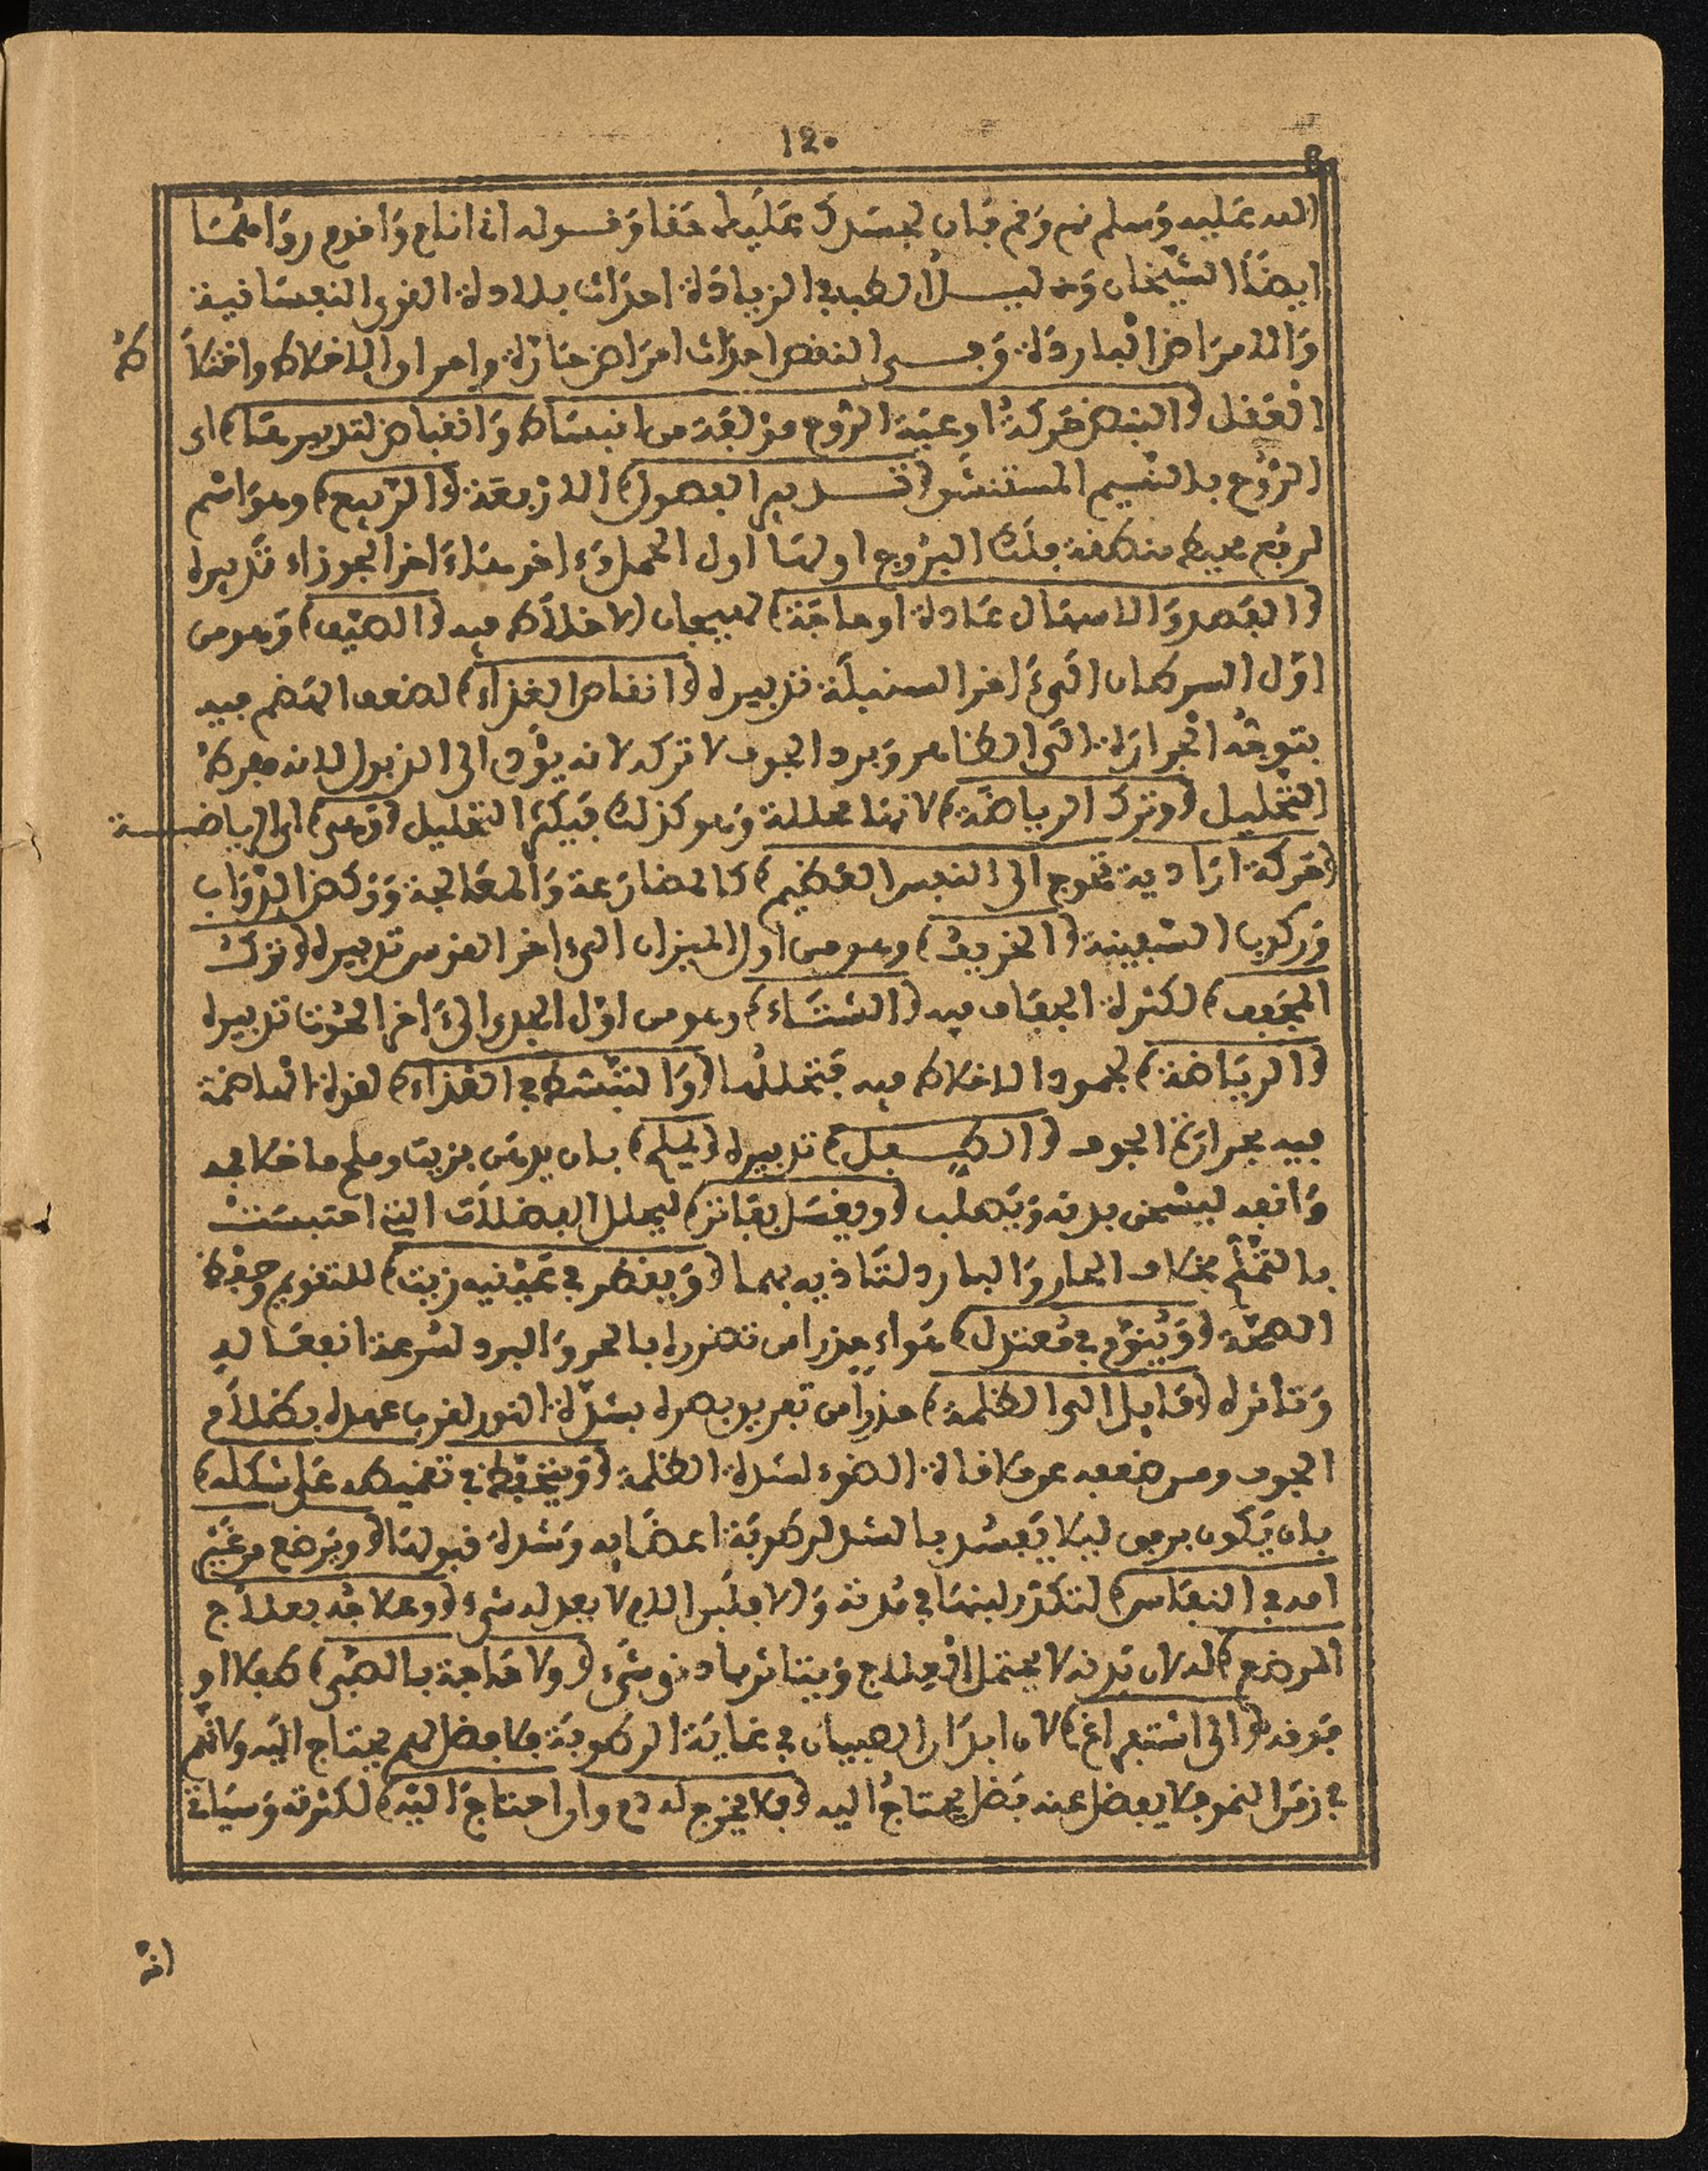 ١٤٠
الله عليه وسلم نم وقم فإن لجسدك عليك حقا وقوله انى انام واقوم رواهما
ايضا الشيخان وعد ليل الطب في الزيادة احداث بلادة القوى النفسانية
والامراض الباردة وفي النقص احداث امراض حارة واحراق الاخلاط واختلاط
العقل (النبض حركة اوعية الروح مؤلفة من انبساط وانقباض لتدبيرها) اى
الروح بالنسيم المستنشق (تدبير الفصول) الاربعة (الربيع) وهو اسم
لربع محيط منطقة فلك البروج اولها اول الحمل وءاخرها ءاخر الجوزاء تدبيره
(الفصد والاسهال عادة او حاجة) لهيجان الاخلاط فيه (الصيف) وهو من
اول السرطان الى ءاخر السنبلة تدبيره (انقاص الغذاء) لضعف الهضم فيه
بتوجه الحرارة الى الظاهر وبرد الجوف لا تركه لانه يؤدى الى الذبول لانه مفرط
التحليل (وترك الرياضة) لانها محللة وهو كذلك فيكثر التحليل (وهى) اى الرياضة
(حركة ارادية تحوج الى النفس العظيم) كالمصارعة والمعالجة وركض الدواب
وركوب السفينة (الخريف) وهو من اول الميزان الى ءاخر القوس تدبيره (ترك
المجفف) لكثرة الجفاف فيه (الشتاء) وهو من اول الجدى الى ءاخر الحوت تدبيره
(الرياضة) لجمود الاخلاط فيه فتحللها (والتبسط في الغذاء) لقوة الهاضمة
فيه بحرارة الجوف (الطفل) تدبيره (يملح) بان يدهن بزيت وملح ما خلا فمه
وانفه ليسخن بدنه ويصلب (ويغسل بفاتر) ليحلل الفضلات التى احتبست
بالتملح بخلاف الحار والبارد لتاذيه بهما (ويقطر في عينيه زيت) للتقويم وحفظ
الصحة (وينوم في معتدل) هواء حذرا من تضرره بالحر والبرد لسرعة انفعاله
وتاثره (مايل الى الظلمة) حذرا من تفريق بصره بشدة النور لقرب عهده بظلام
الجوف ومن ضعفه عن ملاقاة الضوء لشدة الظلمة (ويتحفظ في تقميطه على شكله)
بان يكون برفق ليلا يفسد بالشد لرطوبة اعضايه وشدة قبولها (ويرضع من غير
امه في النفاس) لتكدر لبنها في مدته والا فلبن الام لا يعدله شىء (وعلاجه بعلاج
المرضع) له لان بدنه لا يحتمل العلاج ويتاثر بادنى شىء (ولا حاجة بالصبى) طفلا او
فوقه (الى استفراغ) لان ابدان الصبيان في غاية الرطوبة فلا فضل لهم يحتاج اليه ولانهم
في زمن النمو فلا يفضل عنه فضل يحتاج اليه (فلا يخرج له دم وان احتاج اليه) لكثرته وسيلانه
انه